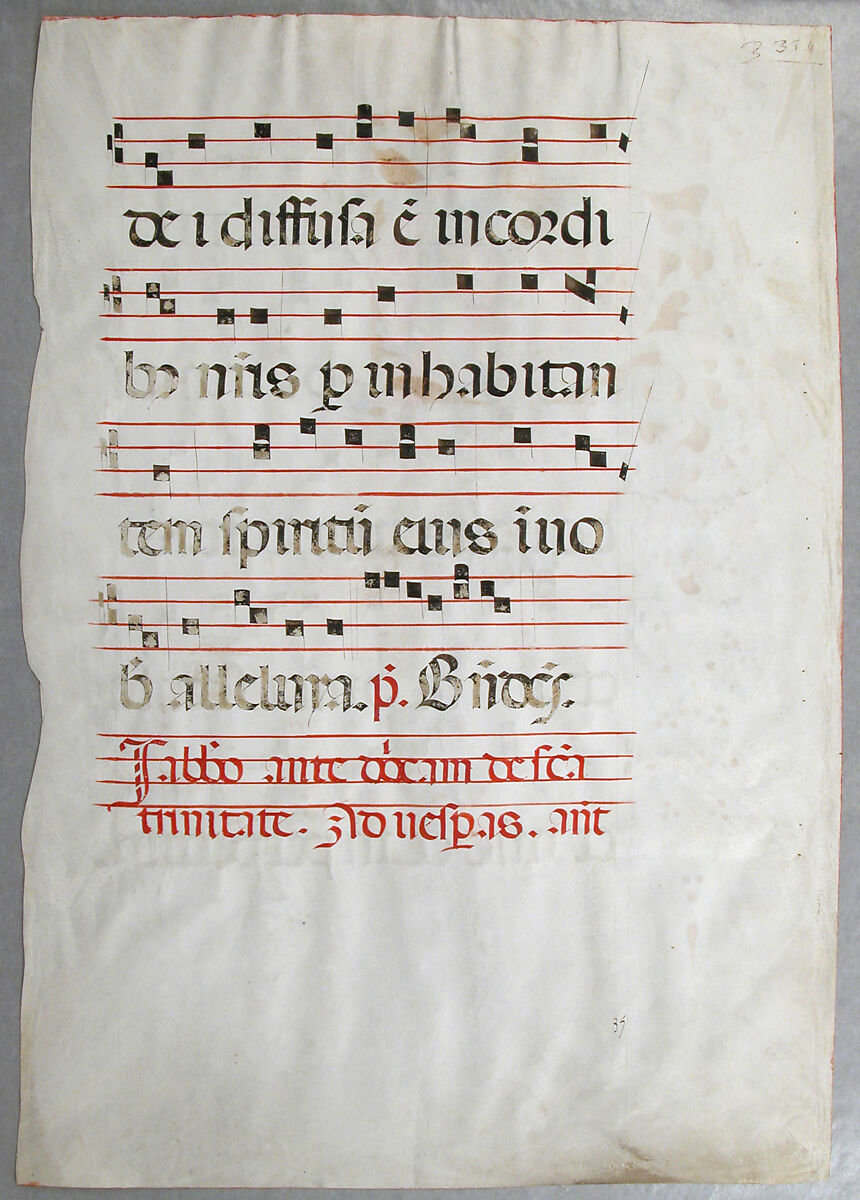 de i diffusa ē in cordi
bo nr̄is p inhabitan
tem spiritū eius ī uo
b̄ alleluya. p̄. Bn̄dc̄.
Sabb̄o ante d̄n̄cam de sc̄a
trinitate. Ad uesp̄as. ant̄
35